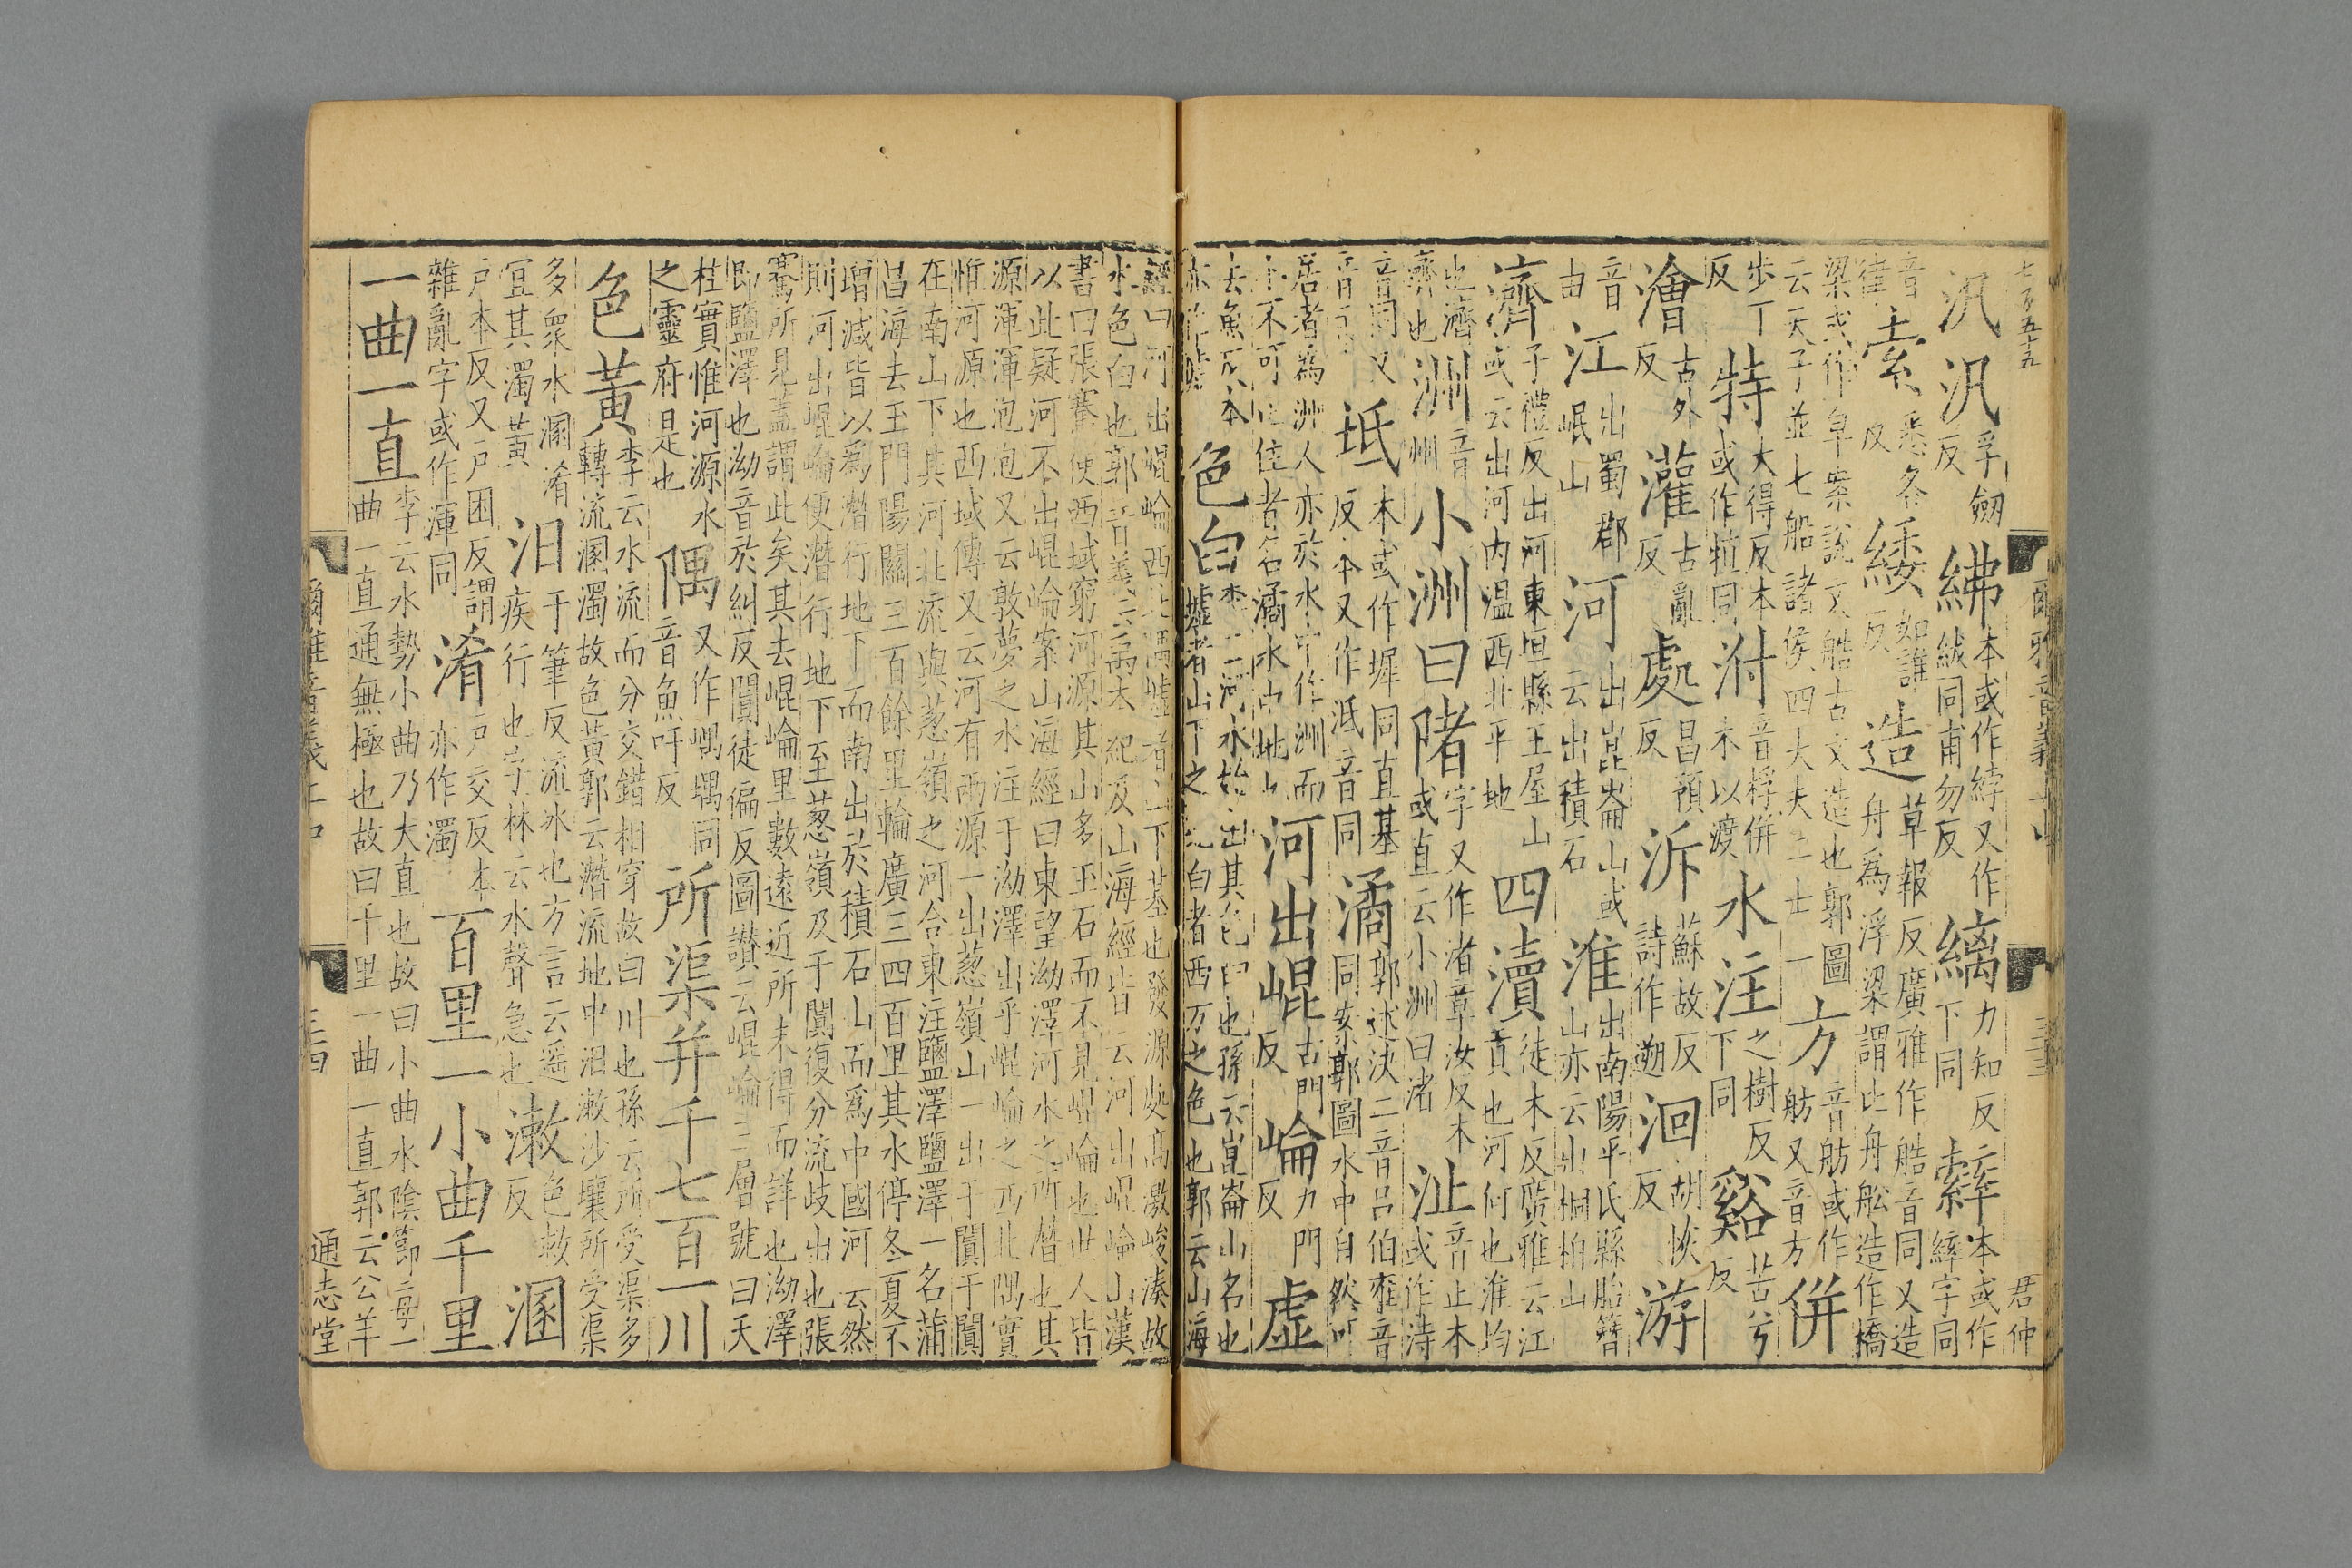 七百五十五 君仲
爾雅音義上中
汎汎孚劒反紼本或作綍又作紱同甫勿反縭力知反下同繂本或作繂字同
音律索悉各反緌如誰反造草報反廣雅作艁音同又造舟爲浮梁謂比舟舩造作橋
梁或作皁案說文艁古文造也郭圖云天子並七船諸侯四大夫二士一方音舫或作舫又音方併
步丁反特大得反本或作㹀同泭音桴併木以渡水注之樹反下同谿苦兮反
澮古外反灌古亂反處昌預反泝蘇故反詩作遡洄胡恢反游
音由江出蜀郡岷山河出崑崙山或云出積石淮出南陽平氏縣胎簪山亦云出桐柏山
濟子禮反出河東垣縣王屋山或云出河內温西北平地四瀆徒木反廣雅云江貢也河何也淮均
也濟濟也洲音州小洲曰陼字又作渚章汝反本或直云小洲曰渚沚音止本或作洔
音同又音市坻本或作墀同直基反本又作泜音同潏郭述決二音呂伯雍音同案郭圖水中自然可
居者為洲人亦於水中作洲而小不可止住者名潏水中地也河出崐古門反崘力門反虛
去魚反本亦作墟色白李云河水始出其色白也孫云崑崙山名也墟者山下之地白者西方之色也郭云山海
經曰河出崐崘西北隅墟者山下基也發源處高激峻湊故
水色白也郭音義云禹本紀及山海經皆云河出崐崘山漢
書曰張騫使西域窮河源其山多玉石而不見崐崘也世人皆
以此疑河不出崐崘案山海經曰東望泑澤河水之所潛也其
源渾渾泡泡又云敦薨之水注于泑澤出乎崐崘之西北隅實
惟河源也西域傳又云河有兩源一出葱嶺山一出于闐于闐
在南山下其河北流與葱嶺之河合東注鹽澤鹽澤一名蒲
昌海去玉門陽關三百餘里輪廣三四百里其水停冬夏不
增減皆以爲潛行地下而南出於積石山而爲中國河云然
則河出崐崘便潛行地下至葱嶺及于闐復分流歧出也張
騫所見蓋謂此矣其去崐崘里數遠近所未得而詳也泑澤
即鹽澤也泑音於糾反闐徒偏反圖讃云崐崘三層號曰天
桂實惟河源水之靈府是也隅又作嵎堣同音魚吁反所渠并千七百一川
色黃李云水流而分交錯相穿故曰川也孫云所受渠多轉流溷濁故色黃郭云潛流地中汩漱沙壤所受渠
多衆水溷淆宜其濁黃汩于筆反流水也方言云遥疾行也字林云水聲急也漱色救反溷
戶本反又戶困反謂雜亂字或作渾同淆戶交反本亦作濁百里一小曲千里
一曲一直李云水勢小曲乃大直也故曰小曲水陰節每一曲一直通無極也故曰千里一曲一直郭云公羊
爾雅音義上中 三十四 通志堂